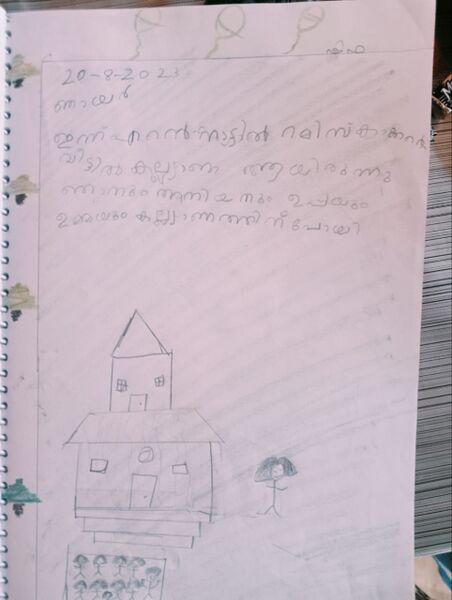 ഷിഫ
20-8-2023
ഞായർ
ഇന്ന് എന്റെ നാട്ടിൽ റമീസ്കാക്കാന്റെ
വീട്ടിൽ കല്ല്യാണം ആയിരുന്നു
ഞാനും അനിയനും ഉപ്പയും
ഉമ്മയും കല്ല്യാണത്തിന് പോയി